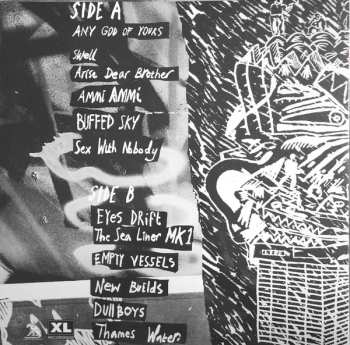 SIDE A
ANY GOD OF YOURS
Swell
Arise Dear Brother
Ammi AMMi
BUFFED SKY
Sex With Nobody
SIDE B
EYES DRiFt
The Sea Liner MK1
EMPTY VESSELS
New Builds
Dull Boys
Thames Water
XL